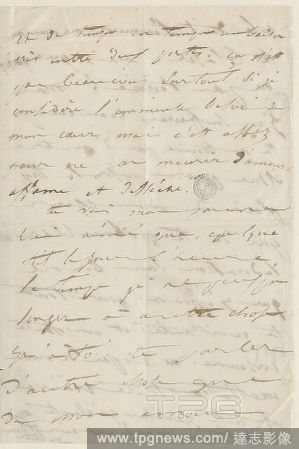 et de temps en temps un baiser
entre deux portes. ça n'est
pas beaucoup surtout si je
considère l'immense besoin de
mon cœur mais c'est assez
pour ne pas mourir d'amour
affamé et desséché.
tu vois mon pauvre
bien aimé que, quelque
soit le jour, l'heure
le temps je ne puis pas
songer à autre chose
qu'à toi te parler
d'autre chose que
de mon amour
TPG
www.tpgnews.com/達志影像